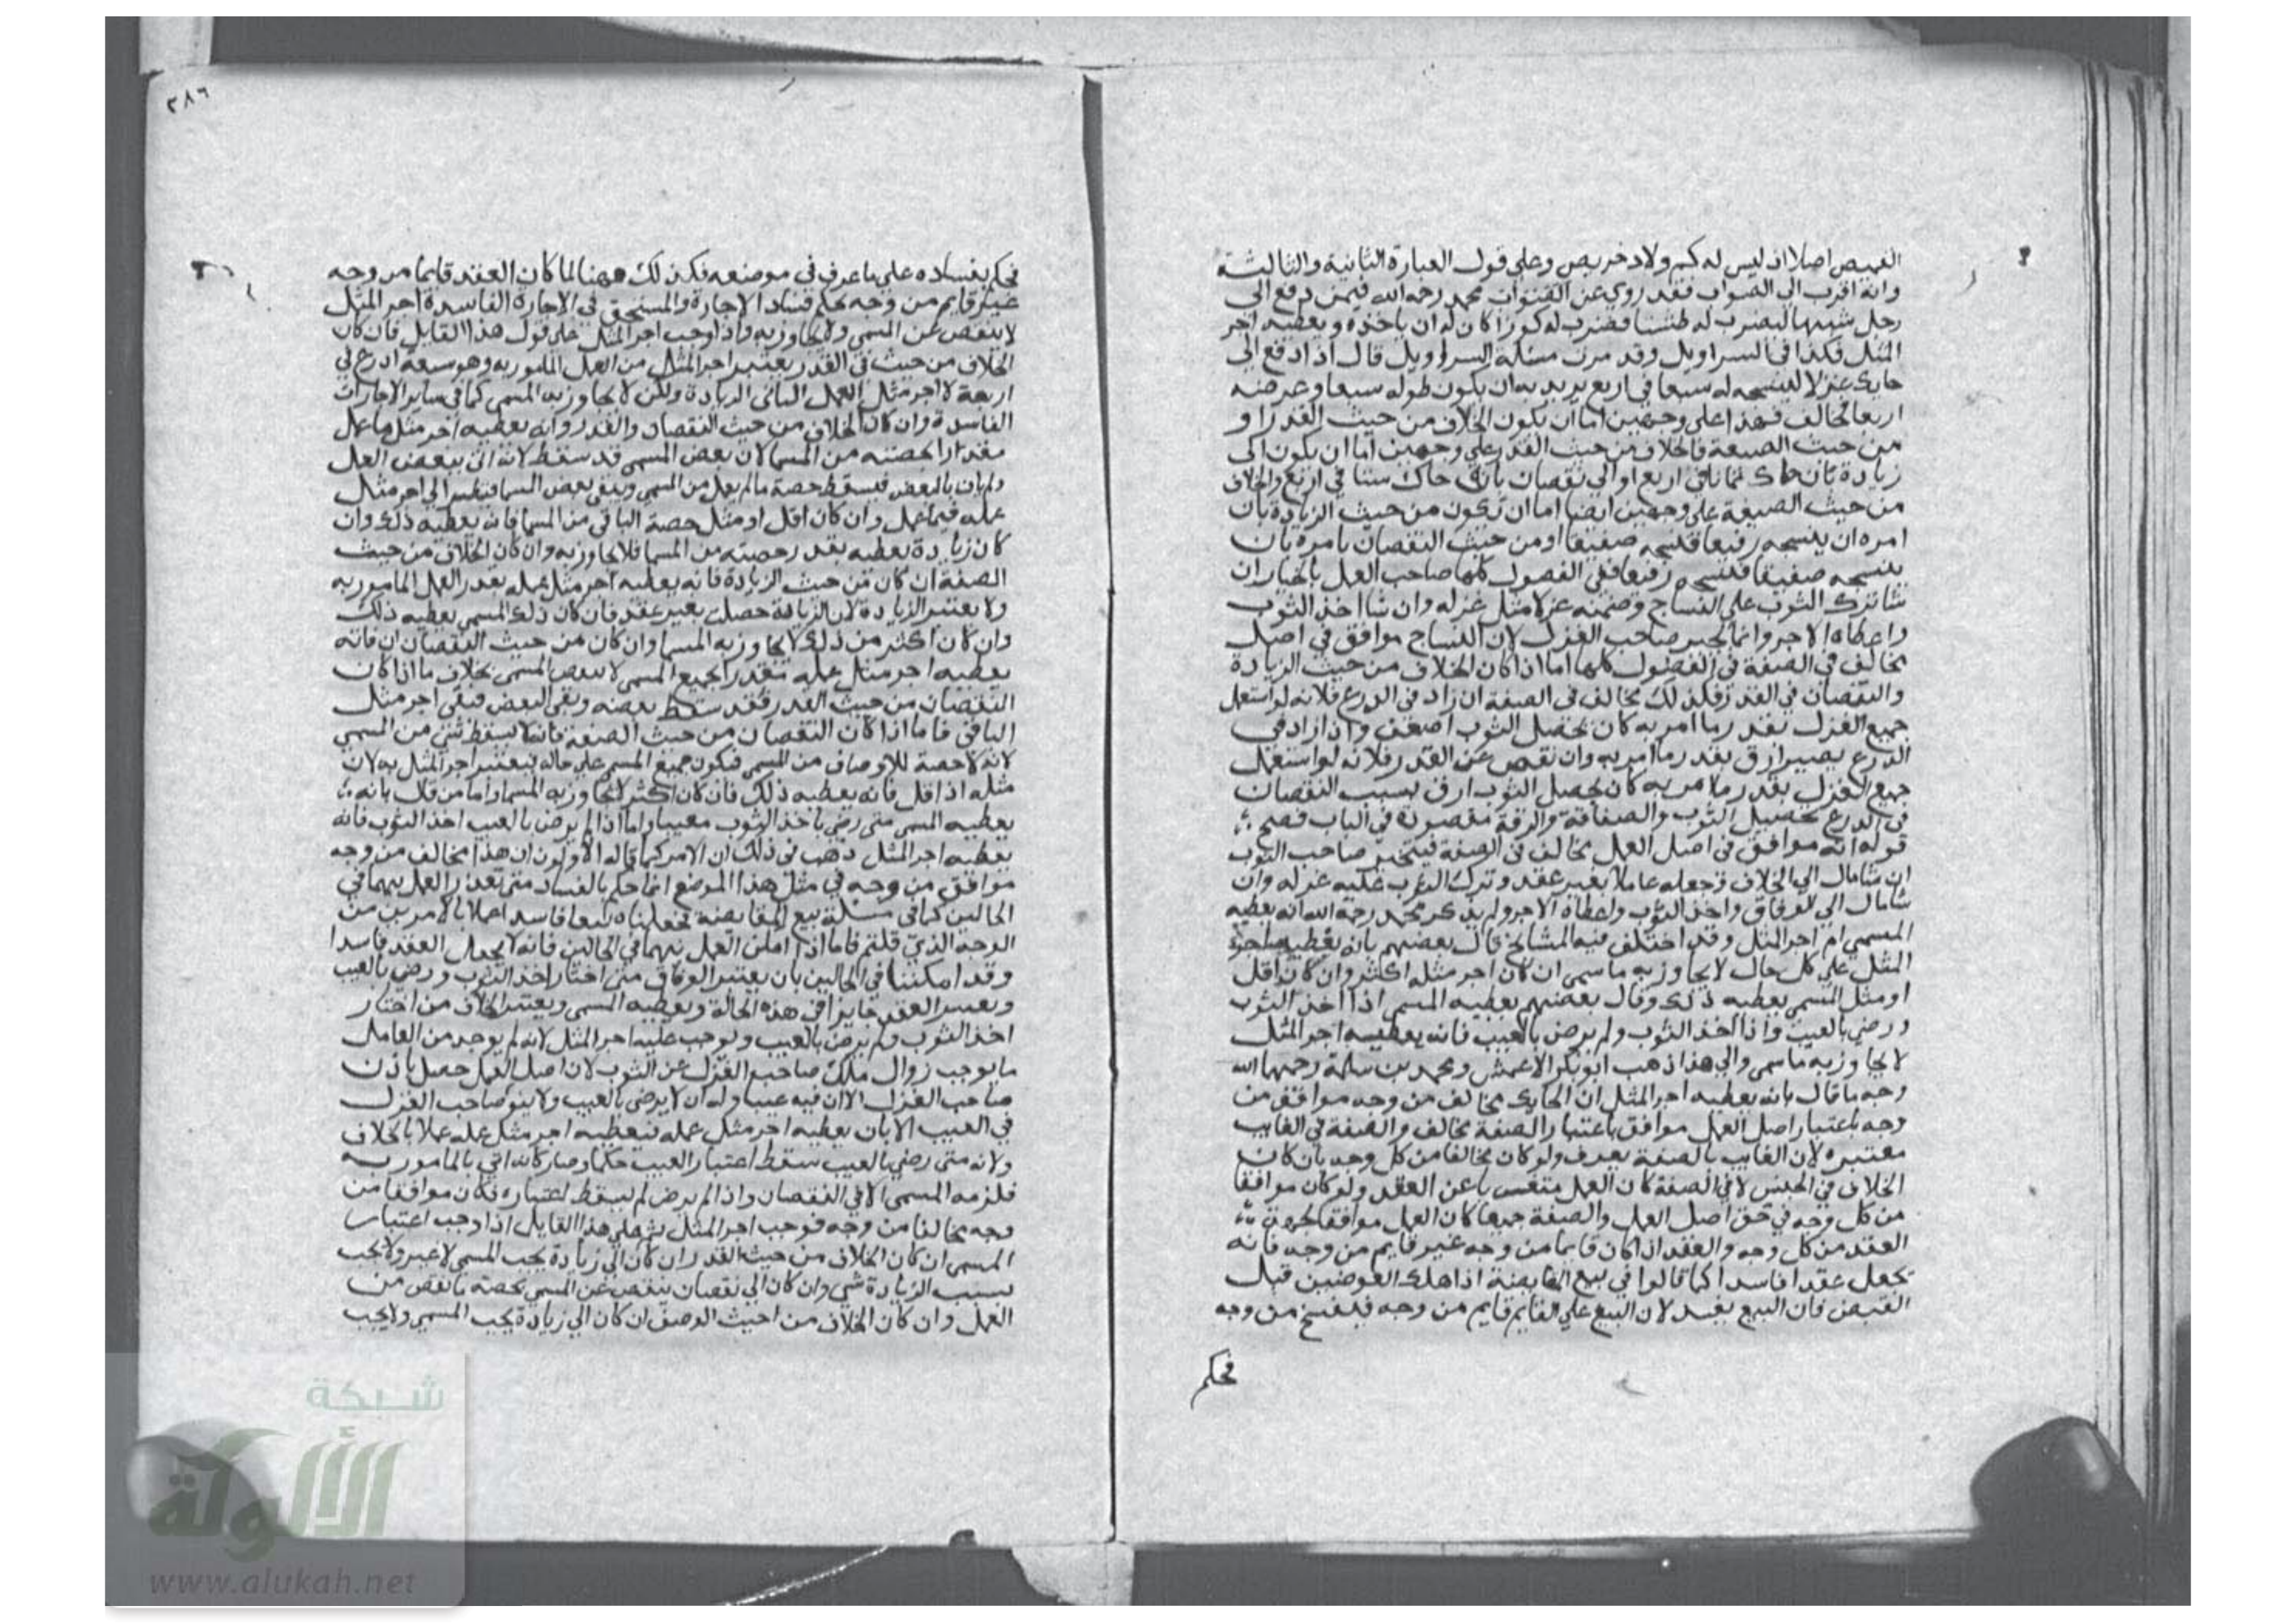 القميص اصلا اذ ليس له كم ولا دخريص وعلي قول العبارة الثانية والثالثة
وانه اقرب الي الصواب فقد روي عن محمد رحمه الله فيمن دفع الي
رجل شبها ليضرب له طشتا فضرب له كوزا كان له ان ياخذه ويعطيه اجر
المثل فكذا في السراويل وقد مرت مسئلة السراويل قال اذا دفع الي
حايك غزلا لينسجه له سبعا في اربع يريد به ان يكون طوله سبعا وعرضه
اربعا فخالف فهذا علي وجهين اما ان يكون الخلاف من حيث القدر او
من حيث الصنعة فالخلاف من حيث القدر علي وجهين اما ان يكون الي
زيادة بان حاك ثمانا في اربع او الي نقصان بان حاك ستا في اربع والخلاف
من حيث الصفة علي وجهين ايضا اما ان تكون من حيث الزيادة بان
امره ان ينسجه رفيعا فنسجه صفيقا او من حيث النقصان بامره بان
ينسجه صفيقا فنسجه رفيعا ففي الفصول كلها صاحب العمل بالخيار ان
شا ترك الثوب علي النساج وضمنه غزلا مثل غزله وان شا اخذ الثوب
واعطاه الاجر وانما يخير صاحب الغزل لان النساج موافق في اصل
مخالف في الصفة في الفصول كلها اما اذا كان الخلاف من حيث الزيادة
والنقصان في القدر فكذلك مخالف في الصفة ان زاد في الدرع فلانه لو استعمل
جميع الغزل بقدر ما امر به كان يحصل الثوب اصفق واذا زاد في
الدرع يصير ارق بقدر ما امر به وان نقص عن القدر فلانه لو استعمل
جميع الغزل بقدر ما امر به كان يحصل الثوب ارق بسبب النقصان
في الدرع يحصل الثوب والصفاقة والرقة مقصودة في الباب فصح
قوله انه موافق في اصل العمل مخالف في الصفة فيتخير صاحب الثوب
ان شا مال الي الخلاف وجعله عاملا بغير عقد وترك الثوب عليه غزله وان
شا مال الي الوفاق واخذ الثوب واعطاه الاجر ولم يذكر محمد رحمه الله انه يعطيه
المسمي ام اجر المثل وقد اختلف فيه المشايخ قال بعضهم بانه يعطيه اجر
المثل علي كل حال لا يجاوز به ما سمي ان كان اجر مثله اكثر وان كان اقل
او مثل المسمي يعطيه ذلك وقال بعضهم يعطيه المسمي اذا اخذ الثوب
ورضي بالعيب واذا اخذ الثوب ولم يرض بالعيب فانه يعطيه اجر المثل
لا يجاوز به ما سمي والي هذا ذهب ابو بكر الاعمش ومحمد بن سلمة رحمهما الله
وجه ما قال بانه يعطيه اجر المثل ان الحايك مخالف من وجه موافق من
وجه باعتبار اصل العمل موافق باعتبار الصفة مخالف والصفة في الغايب
معتبرة لان الغايب بالصفة يعرف ولو كان مخالفا من كل وجه بان كان
الخلاف في الجنس لا في الصفة كان العمل متعريا عن العقد ولو كان موافقا
من كل وجه في حق اصل العمل والصفة جميعا كان العمل موافقا
العقد من كل وجه والعقد اذا كان قايما من وجه غير قايم من وجه فانه
يجعل عقدا فاسدا كما قالوا في بيع المقايضة اذا هلك احد العوضين قبل
القبض فان البيع يفسد لان البيع علي القايم قايم من وجه فينفسخ من وجه
فحكم
٢٨٦
فحكم بفساده علي ما عرف في موضعه فكذلك ههنا لما كان العقد قايما من وجه
غير قايم من وجه حكم بفساد الاجارة والمستحق في الاجارة الفاسدة اجر المثل
لا ينقص عن المسمي ولا يجاوز به واذا وجب اجر المثل علي قول هذا القايل فان كان
الخلاف من حيث في القدر يعتبر اجر المثل من العمل المامور به وهو سبعة ادرع في
اربعة لا اجر مثل العمل الزيادة ولكن لا يجاوز به المسمي كما في ساير الاجارات
الفاسدة وان كان الخلاف من حيث النقصان والقدر وانه يعطيه اجر مثل ما عمل
مقدارا بحصته من المسما لان بعض المسمي قد سقط لانه اتي ببعض العمل
ولم يات بالبعض فيسقط حصة ما لم يعمل من المسمي ويبقي بعض المسما فينظر الي اجر مثل
عمله فيما عمل وان كان اقل او مثل حصة الباقي من المسما فانه يعطيه ذلك وان
كان زيادة يعطيه بقدر حصته من المسما فلا يجاوز به وان كان الخلاف من حيث
الصفة ان كان من حيث الزيادة فانه يعطيه اجر مثل عمله بقدر العمل المامور به
ولا يعتبر الزيادة لان الزيادة حصلت بغير عقد فان كان ذلك المسمي يعطيه ذلك
وان كان اكثر من ذلك لا يجاوز به المسما وان كان من حيث النقصان فانه
يعطيه اجر مثل عمله مقدرا بجميع المسمي لا ببعض المسمي بخلاف ما اذا كان
النقصان من حيث القدر فقد سقط بعضه وبقي البعض فبقي اجر مثل
الباقي فاما اذا كان النقصان من حيث الصفة فانه لا يسقط شي من المسمي
لانه لا حصة للاوصاف من المسمي فيكون جميع المسمي علي حاله فيعتبر اجر المثل به لان
مثله اذا قل فانه يعطيه ذلك فان كان اكثر لا يجاوز به المسما واما من قال بانه
يعطيه المسمي متي رضي باخذ الثوب معيبا واما اذا لم يرض بالعيب اخذ الثوب فانه
يعطيه اجر المثل ذهب في ذلك ان الامر كما قاله الاولون ان هذا مخالف من وجه
موافق من وجه في مثل هذا الموضع انما حكم بالفساد متي تعذر العمل بهما في
الحالين كما في مسئلة بيع المقايضة فجعلناه بيعا فاسدا عملا بالامرين من
الوجه الذي قلتم فاما اذا امكن العمل بهما في الحالين فانه لا يجعل العقد فاسدا
وقد امكننا في الحالين بان يعتبر الوفاق متي اختار اخذ الثوب ورضي بالعيب
ويعتبر العقد جايزا في هذه الحالة ويعطيه المسمي ويعتبر الخلاف من اختار
اخذ الثوب ولم يرض بالعيب ويوجب عليه اجر المثل لانه لم يوجد من العامل
ما يوجب زوال ملك صاحب الغزل عن الثوب لان اصل العمل حصل باذن
صاحب الغزل الا ان فيه عيبا وله ان لا يرضي بالعيب ولا صاحب الغزل
في العيب الا بان يعطيه اجر مثل عمله فيعطيه اجر مثل عمله عملا بالخلاف
ولانه متي رضي بالعيب سقط اعتبار العيب حكما وصار كانه اتي بالمامور به
فلزمه المسمي الا في النقصان واذا لم يرض لم يسقط اعتباره فكان موافقا من
وجه مخالفا من وجه فوجب اجر المثل ثم علي هذا القايل اذا وجب اعتبار
المسمي ان كان الخلاف من حيث القدر ان كان الي زيادة يجب المسمي لا غير ولا يجب
بسبب الزيادة شي وان كان الي نقصان ينقص عن المسمي بحصته ما نقص من
العمل وان كان الخلاف من حيث الوصف ان كان الي زيادة يجب المسمي ولا يجب
شبكة
الألوكة
www.alukah.net